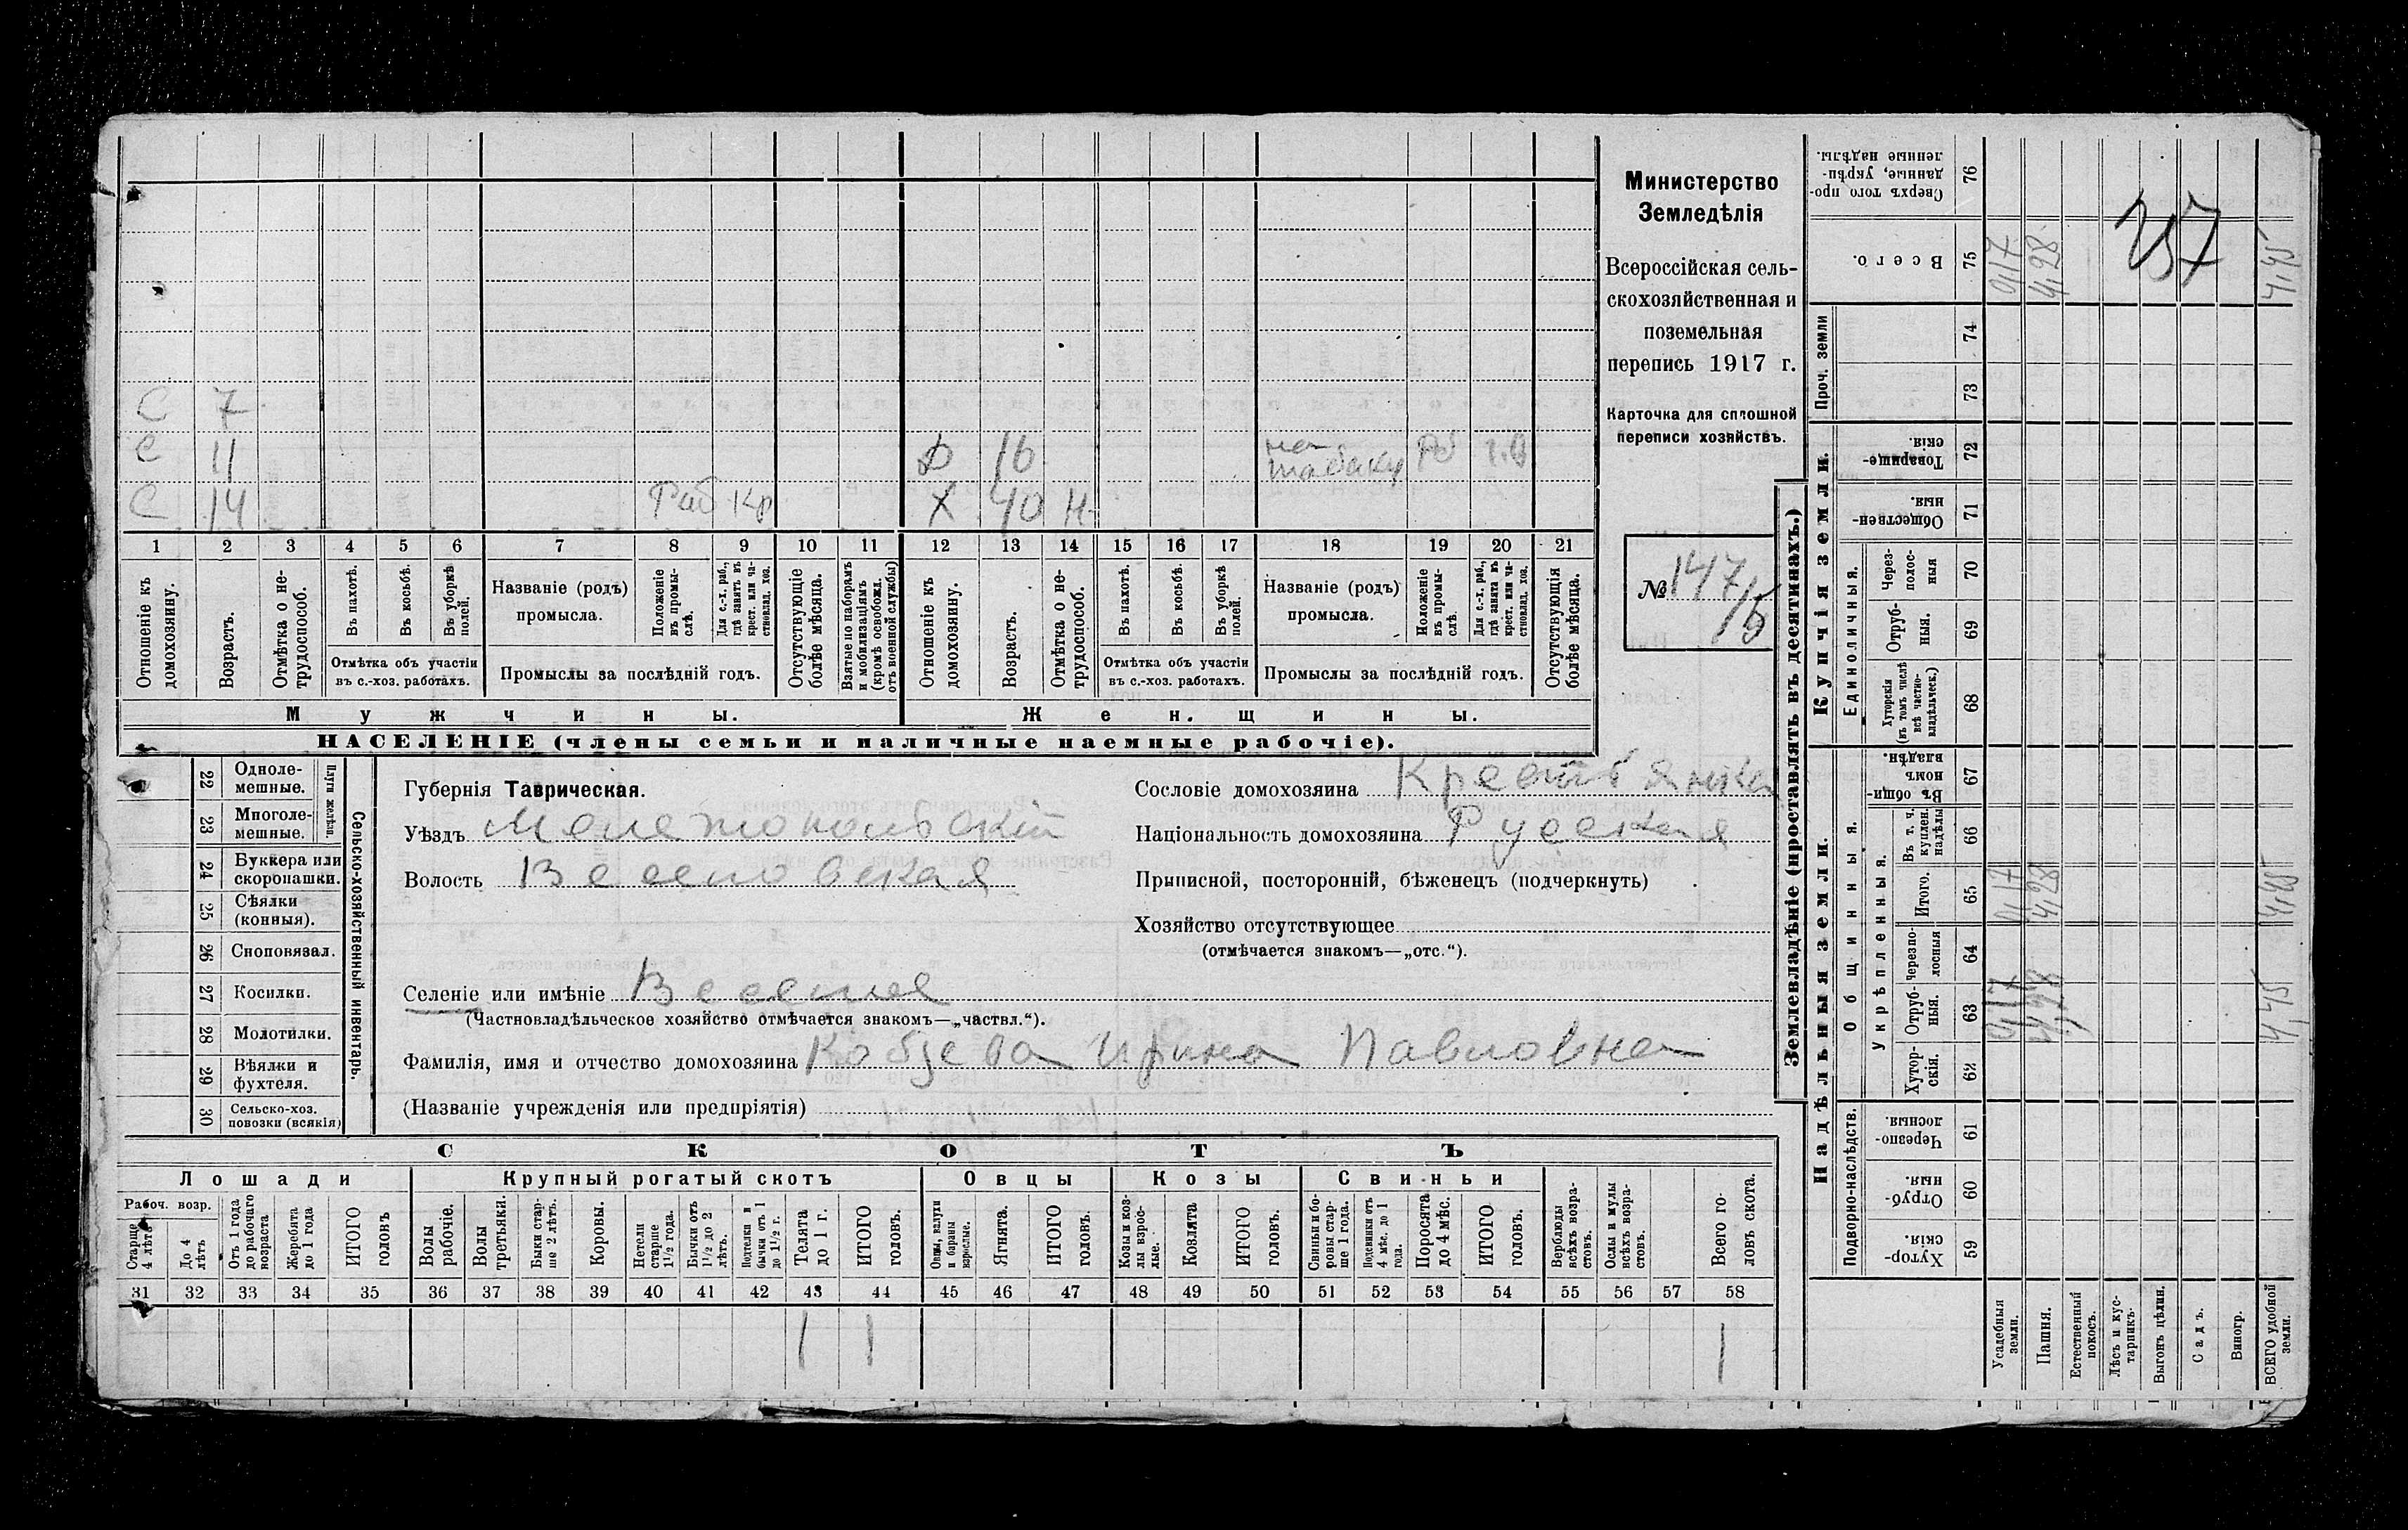 С 7
С 11 Д 16 на табаку
С 14 Раб Кр Х 40 Н
1 2 3 4 5 6 7 8 9 10 11 12 13 14 15 16 17 18 19 20 21
Отношеніе къ домохозяину.
Возрастъ.
Отмѣтка о не-
трудоспособ.
Въ пахотѣ.
Въ косьбѣ.
Въ уборкѣ полей.
Отмѣтка объ участіи
въ с.-хоз. работахъ.
Названіе (родъ)
промысла.
Положеніе въ промы-
слѣ.
Для с.-х. раб., гдѣ занятъ въ крест. или ча-
стновлад. хоз.
Промыслы за послѣдній годъ.
Отсутствующіе
болѣе мѣсяца.
Взятые по наборамъ
и мобилизаціямъ
(кромѣ освобожд.
отъ военной службы)
Отношеніе къ
домохозяину.
Возрастъ.
Отмѣтка о не-
трудоспособ.
Въ пахотѣ.
Въ косьбѣ.
Въ уборкѣ
полей.
Отмѣтка объ участіи
въ с.-хоз. работахъ.
Названіе (родъ)
промысла.
Положеніе
въ промы-
слѣ.
Для с.-х. раб.,
гдѣ занята въ
крест. или ча-
стновлад. хоз.
Промыслы за послѣдній годъ.
Отсутствующія
болѣе мѣсяца.
Мужчины.
Женщины.
НАСЕЛЕНІЕ (члены семьи и наличные наемные рабочіе).
Министерство
Земледѣлія
Всероссійская сель-
скохозяйственная и
поземельная
перепись 1917 г.
Карточка для сплошной
переписи хозяйствъ.
№ 147/5
22 Одноле-
мешные.
23 Многоле-
мешные.
Плуги желѣзн.
24 Буккера или
скоропашки.
25 Сѣялки
(конныя).
26 Сноповязал.
27 Косилки.
28 Молотилки.
29 Вѣялки и
фухтеля.
30 Сельско-хоз.
повозки (всякія)
Сельско-хозяйственный инвентарь.
Губернія Таврическая.
Уѣздъ Мелетопольскій
Волость Веселовская
Селеніе или имѣніе Веселое
(Частновладѣльческое хозяйство отмѣчается знакомъ—„частвл.“).
Фамилія, имя и отчество домохозяина Кобзева Ирина Павловна
(Названіе учрежденія или предпріятія)
Сословіе домохозяина Крестьянка
Національность домохозяина Русская
Приписной, посторонній, бѣженецъ (подчеркнуть)
Хозяйство отсутствующее
(отмѣчается знакомъ—„отс.“).
СКОТЪ
Лошади
Крупный рогатый скотъ
Овцы
Козы
Свиньи
Рабоч. возр.
Старше
4 лѣтъ
До 4
лѣтъ
Отъ 1 года
до рабочаго
возраста
Жеребята
до 1 года
ИТОГО
головъ
Волы
рабочіе.
Волы
третьяки.
Быки стар-
ше 2 лѣтъ.
Коровы.
Нетели
старше
1½ года.
Бычки отъ
1½ до 2
лѣтъ.
Подтелки и
бычки отъ 1
до 1½ г.
Телята
до 1 г.
ИТОГО
головъ.
Овцы, валухи
и бараны
взрослые.
Ягнята.
ИТОГО
головъ.
Козы и коз-
лы взрос-
лые.
Козлята
ИТОГО
головъ.
Свиньи и бо-
ровы стар-
ше 1 года.
Подсвинки отъ
4 мѣс. до 1
года.
Поросята
до 4 мѣс.
ИТОГО
головъ.
Верблюды
всѣхъ возра-
стовъ.
Ослы и мулы
всѣхъ возра-
стовъ.
Всего го-
ловъ скота.
31 32 33 34 35 36 37 38 39 40 41 42 43 44 45 46 47 48 49 50 51 52 53 54 55 56 57 58
1 1 1
Землевладѣніе (проставлять въ десятинахъ.)
Надѣльныя земли.
Купчія земли.
Проч. земли
Сверхъ того про-
данные, укрѣп-
ленные надѣлы.
76
Всего.
75 0,17 4,28 4,45
257
74
73
Товарище-
скія.
72
Обществен-
ныя.
71
Единоличныя.
Через-
полос-
ныя
70
Отруб-
ныя.
69
Хуторскія
(въ томъ числѣ
всѣ частно-
владѣльческ.)
68
Общинныя.
Въ общи-
номъ
владѣн.
67
Укрѣпленныя.
Въ т. ч.
куплен.
надѣлы
66
Итого.
65 0,17 4,28 4,45
Черезпо-
лосныя
64
Отруб-
ныя.
63 0,17 4,28 4,45
Хутор-
скія.
62
Подворно-наслѣдств.
Черезпо-
лосныя
61
Отруб-
ныя.
60
Хутор-
скія.
59
Усадебныя
земли.
Пашня.
Естественный
покосъ.
Лѣсъ и кус-
тарникъ.
Выгонъ цѣлин.
Садъ.
Виногр.
ВСЕГО удобной
земли.